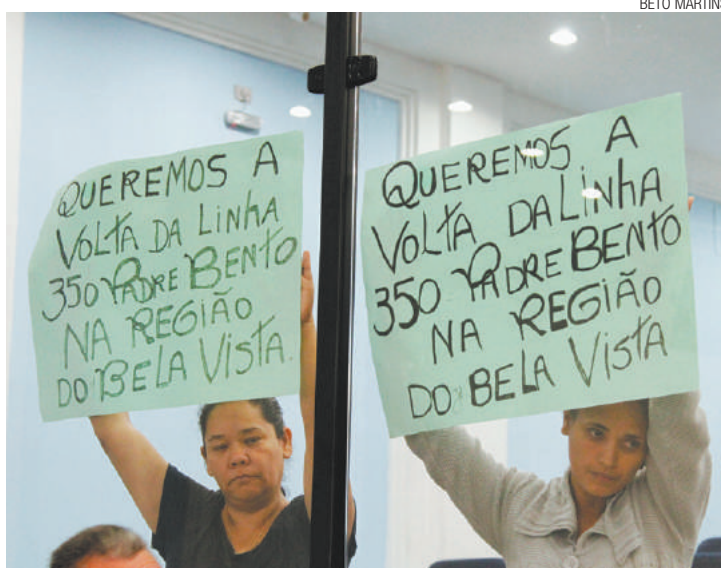 BETO MARTINS
QUEREMOS A
VOLTA DA LINHA
350 PADRE BENTO
NA REGIÃO
DO BELA VISTA.
QUEREMOS A
VOLTA DA LINHA
350 PADRE BENTO
NA REGIÃO
DO BELA VISTA